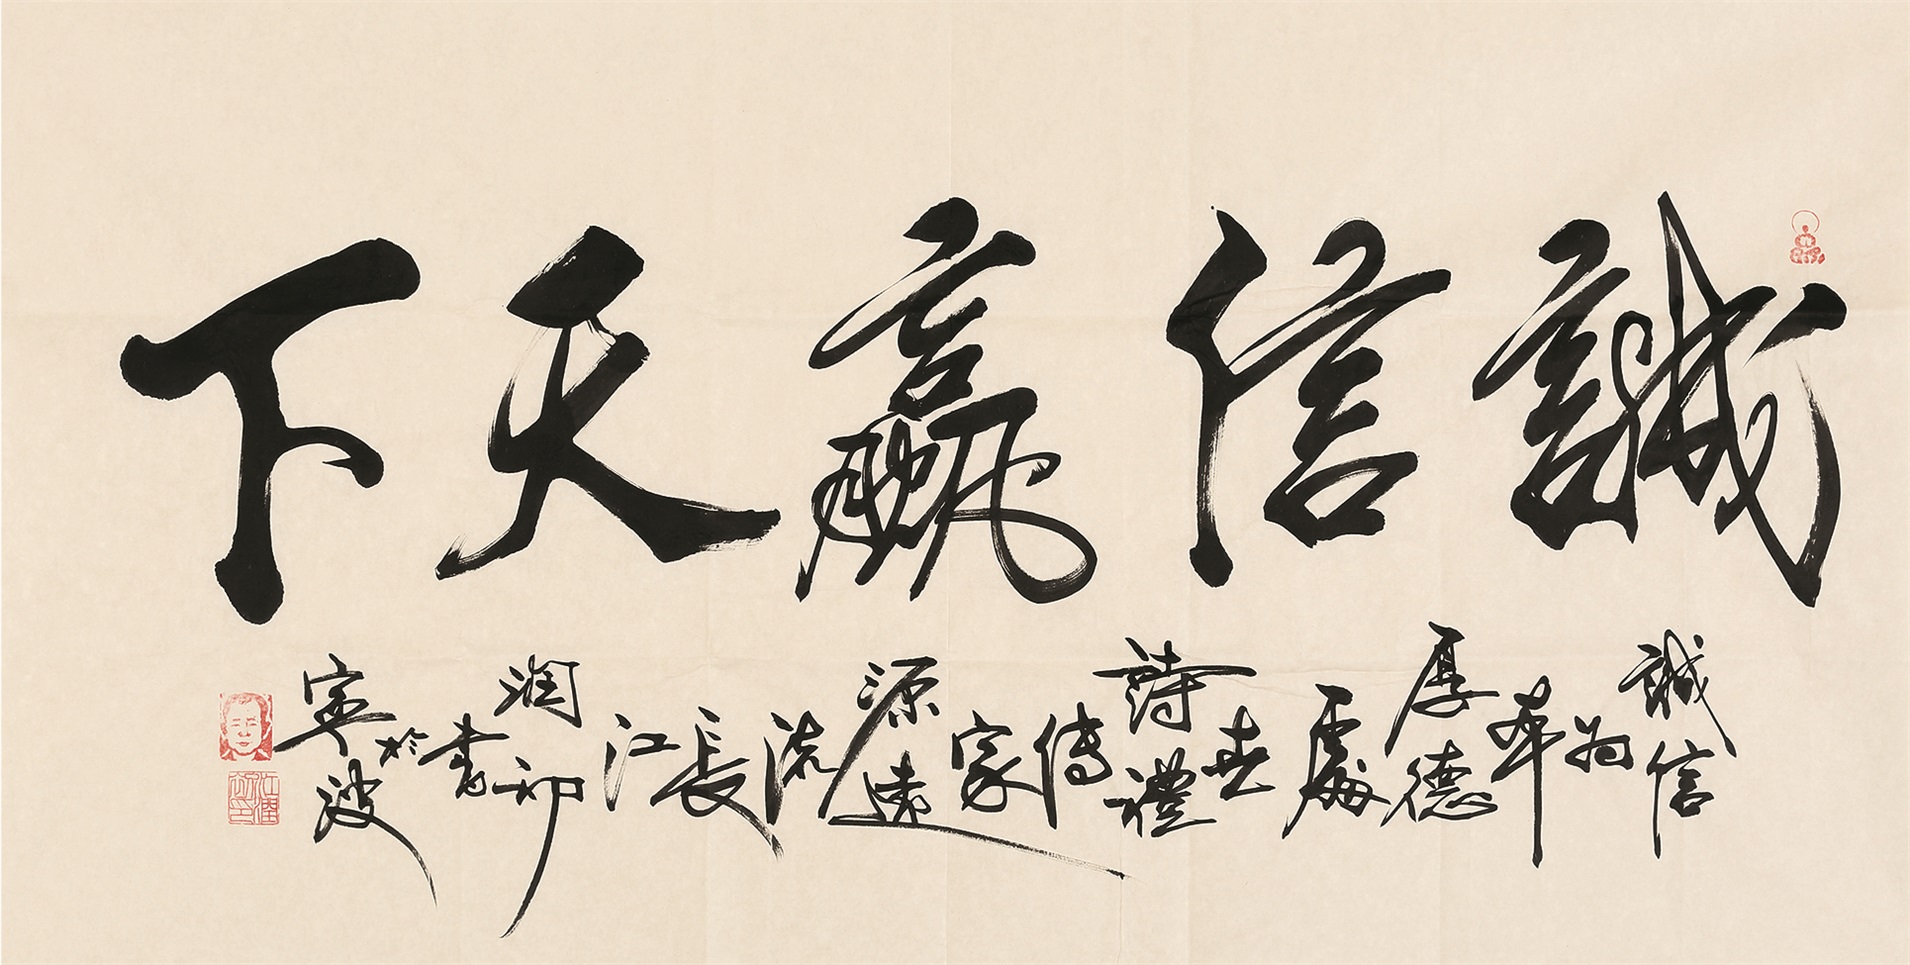 誠信贏天下
誠信為本厚德處世詩禮傳家源遠流長江潤初書於寧波
江潤初印